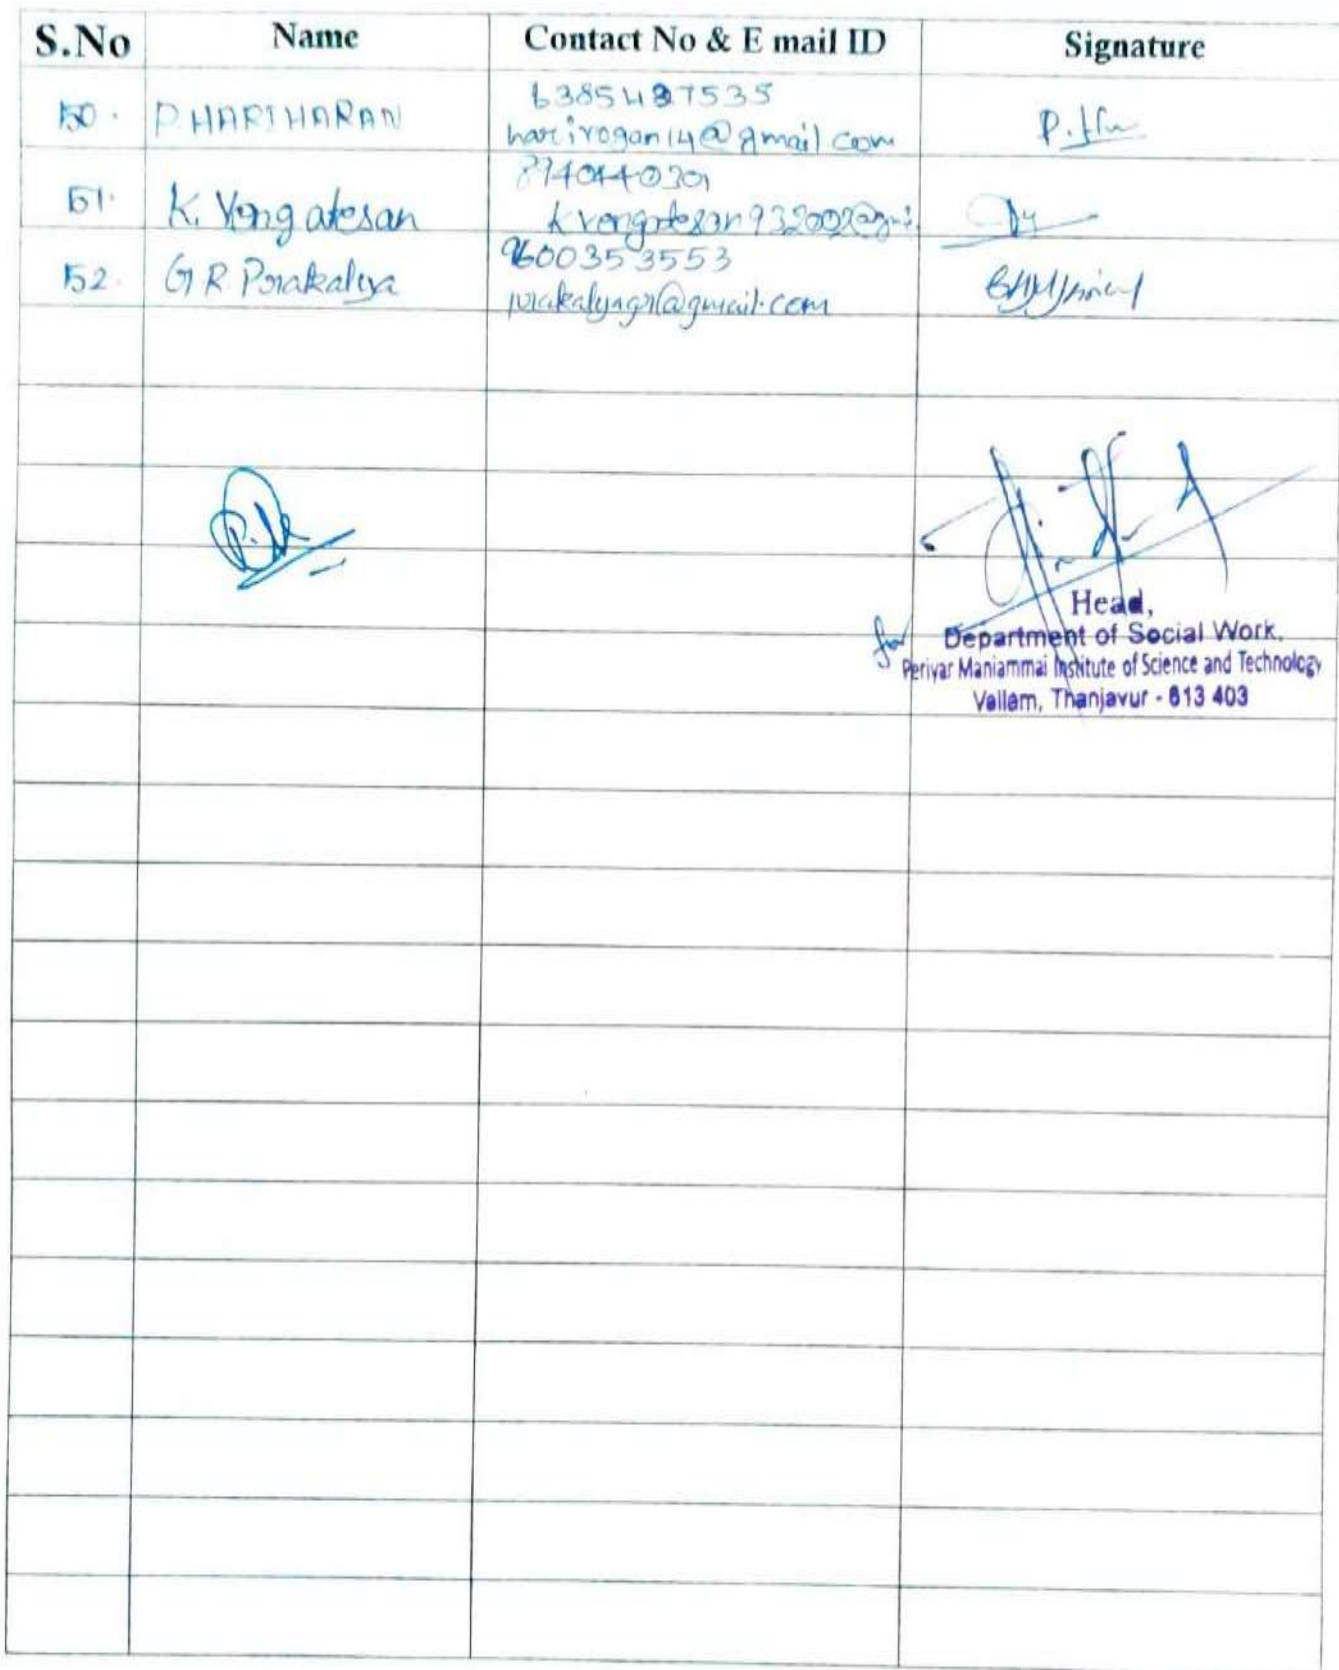 S.No Name Contact No & E mail ID Signature
50. P HARIHARAN 6385487535
harirogan14@gmail.com
51. K. Vengatesan 8940440301
kvengatesan932002@gmai
52. G R Porakalya 9600353553
porakalyagr@gmail.com
for Head,
Department of Social Work,
Periyar Maniammai Institute of Science and Technology
Vallam, Thanjavur - 613 403